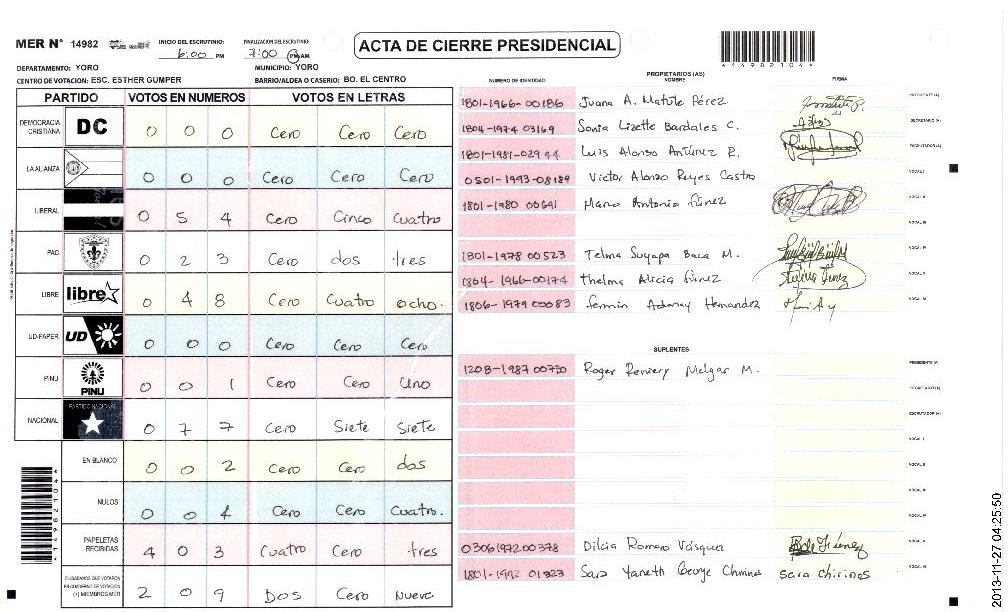 MER N° 14982
INICIO DEL ESCRUTINIO: 6:00 PM
FINALIZACION DEL ESCRUTINIO: 7:00 PM AM
ACTA DE CIERRE PRESIDENCIAL
DEPARTAMENTO: YORO
MUNICIPIO: YORO
CENTRO DE VOTACION: ESC. ESTHER GUMPER
BARRIO/ALDEA O CASERIO: BO. EL CENTRO
PARTIDO VOTOS EN NUMEROS VOTOS EN LETRAS
DEMOCRACIA CRISTIANA DC 0 0 0 Cero Cero Cero
LA ALIANZA 0 0 0 Cero Cero Cero
LIBERAL 0 5 4 Cero Cinco Cuatro
PAC 0 2 3 Cero dos tres
LIBRE libre 0 4 8 Cero Cuatro ocho.
UD-FAPER UD 0 0 0 Cero Cero Cero
PINU PINU 0 0 1 Cero Cero Uno
NACIONAL PARTIDO NACIONAL 0 7 7 Cero Siete Siete
EN BLANCO 0 0 2 Cero Cero dos
NULOS 0 0 4 Cero Cero Cuatro.
PAPELETAS RECIBIDAS 4 0 3 Cuatro Cero tres
CIUDADANOS QUE VOTARON
EN CUADERNO DE VOTACION
(+) MIEMBROS MER 2 0 9 Dos Cero Nueve
PROPIETARIOS (AS)
NUMERO DE IDENTIDAD NOMBRE FIRMA
1801-1966-00186 Juana A. Matute Pérez PRESIDENTE (A)
1804-1974 03169 Sonia Lizette Bardales C. SECRETARIO (A)
1801-1981-02944 Luis Alonso Antúnez R. ESCRUTADOR (A)
0501-1993-08189 Victor Alonzo Reyes Castro VOCAL I
1801-1980 00691 Marco Antonio Fúnez VOCAL II
VOCAL III
1801-1978 00523 Telma Suyapa Baca M. VOCAL IV
1804-1966-00174 Thelma Alicia Fúnez VOCAL V
1806-1979 00083 Fermin Adonay Hernandez VOCAL VI
SUPLENTES
1208-1987 00730 Roger Reniery Melgar M. PRESIDENTE (A)
SECRETARIO (A)
ESCRUTADOR (A)
VOCAL I
VOCAL II
VOCAL III
VOCAL IV
0306197200378 Dilcia Romero Vásquez VOCAL V
1801-1992 01323 Sara Yaneth George Chirinos sara chirinos VOCAL VI
*14982104*
*14982104*
2013-11-27 04:25:50